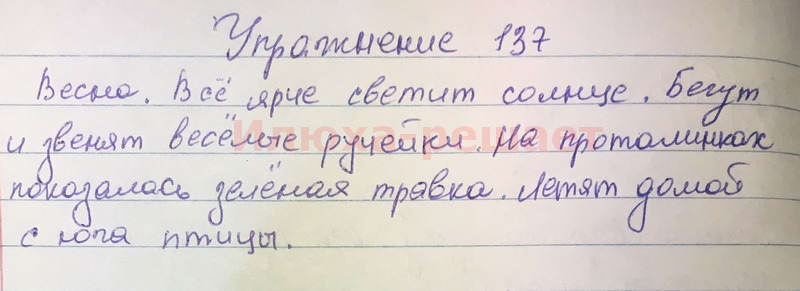 Упражнение 137
Весна. Всё ярче светит солнце. Бегут
и звенят весёлые ручейки. На проталинках
показалась зелёная травка. Летят домой
с юга птицы.
Илюха-решает